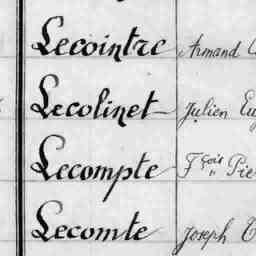 Lecointre Armand
Lecolinet Julien
Lecompte Fçois
Lecomte Joseph